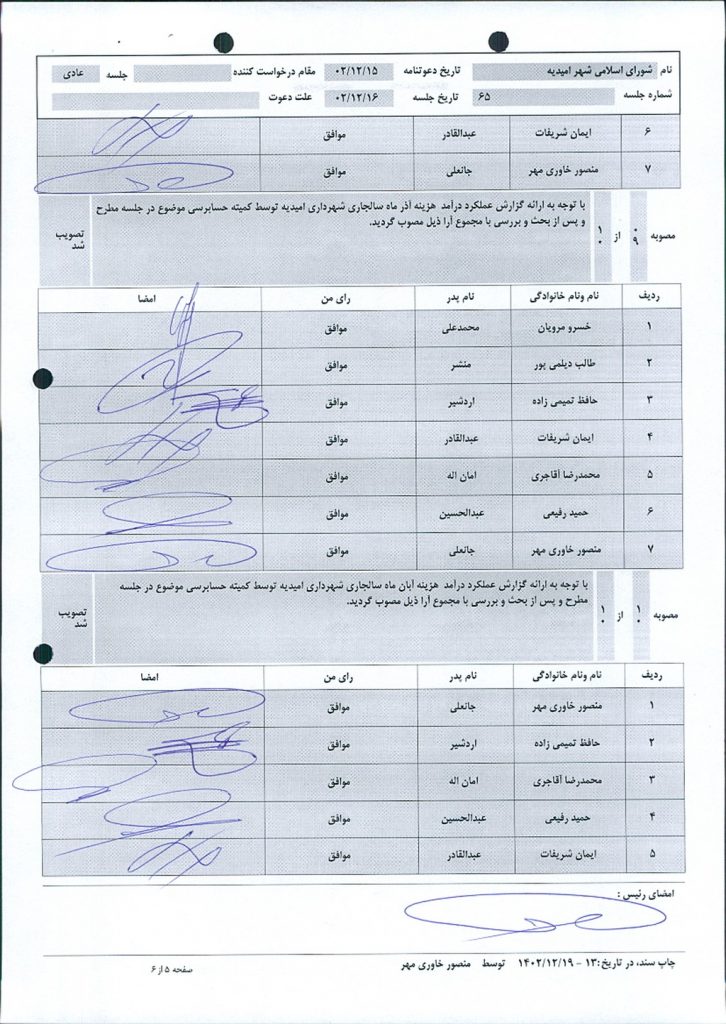 نام شورای اسلامی شهر امیدیه تاریخ دعوتنامه ۰۲/۱۲/۱۵ مقام درخواست کننده جلسه عادی
شماره جلسه ۶۵ تاریخ جلسه ۰۲/۱۲/۱۶ علت دعوت
۶ ایمان شریفات عبدالقادر موافق
۷ منصور خاوری مهر جانعلی موافق
مصوبه ۰۹ از ۱۰ با توجه به ارائه گزارش عملکرد درآمد هزینه آذر ماه سالجاری شهرداری امیدیه توسط کمیته حسابرسی موضوع در جلسه مطرح
و پس از بحث و بررسی با مجموع آرا ذیل مصوب گردید. تصویب شد
ردیف نام ونام خانوادگی نام پدر رای من امضا
۱ خسرو مرویان محمدعلی موافق
۲ طالب دیلمی پور منشر موافق
۳ حافظ تمیمی زاده اردشیر موافق
۴ ایمان شریفات عبدالقادر موافق
۵ محمدرضا آقاجری امان اله موافق
۶ حمید رفیعی عبدالحسین موافق
۷ منصور خاوری مهر جانعلی موافق
مصوبه ۱۰ از ۱۰ با توجه به ارائه گزارش عملکرد درآمد هزینه آبان ماه سالجاری شهرداری امیدیه توسط کمیته حسابرسی موضوع در جلسه
مطرح و پس از بحث و بررسی با مجموع آرا ذیل مصوب گردید. تصویب شد
ردیف نام ونام خانوادگی نام پدر رای من امضا
۱ منصور خاوری مهر جانعلی موافق
۲ حافظ تمیمی زاده اردشیر موافق
۳ محمدرضا آقاجری امان اله موافق
۴ حمید رفیعی عبدالحسین موافق
۵ ایمان شریفات عبدالقادر موافق
امضای رئیس :
چاپ سند، در تاریخ:۱۳ - ۱۴۰۲/۱۲/۱۹ توسط منصور خاوری مهر
صفحه ۵ از ۶